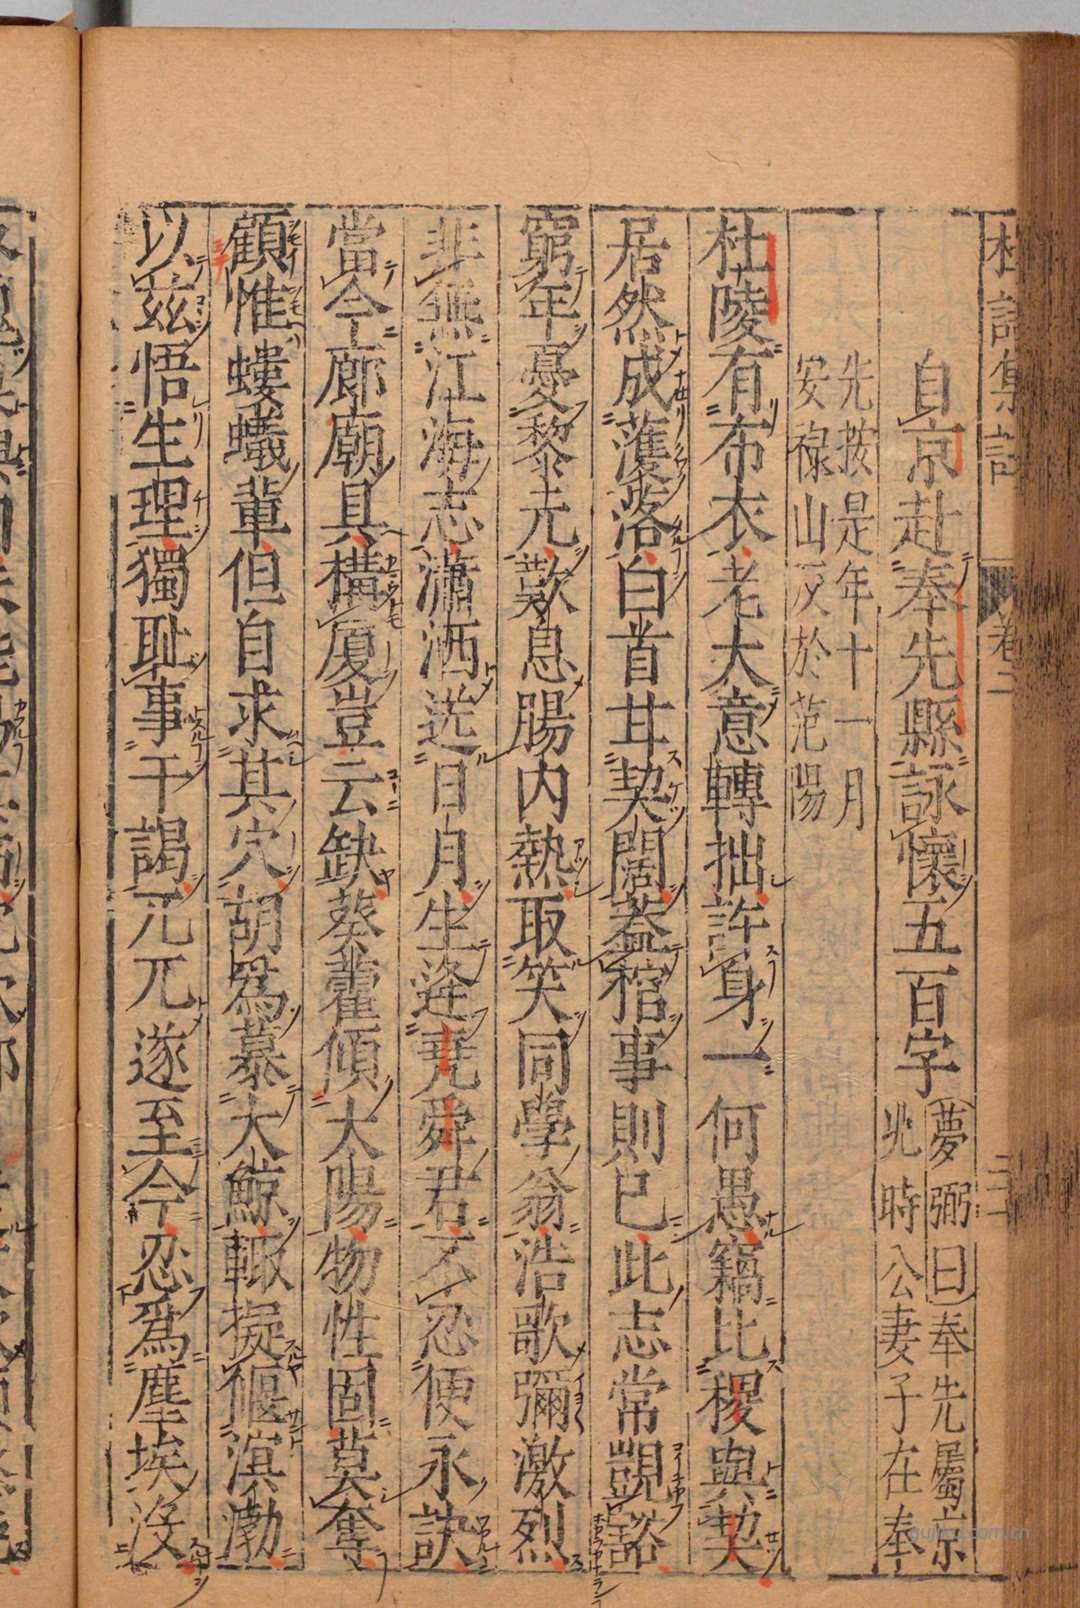 自京赴奉先縣詠懷五百字 夢弼曰奉先屬京
兆時公妻子在奉
先按是年十一月
安祿山反於范陽
杜陵有布衣老大意轉拙許身一何愚竊比稷與契
居然成濩落白首甘契闊蓋棺事則已此志常覬豁
窮年憂黎元歎息腸内熱取笑同學翁浩歌彌激烈
非無江海志瀟洒送日月生逢堯舜君不忍便永訣
當今廊廟具構廈豈云缺葵藿傾太陽物性固莫奪
顧惟螻蟻輩但自求其穴胡爲慕大鯨輙擬偃溟渤
以茲悟生理獨恥事干謁兀兀遂至今忍爲塵埃没